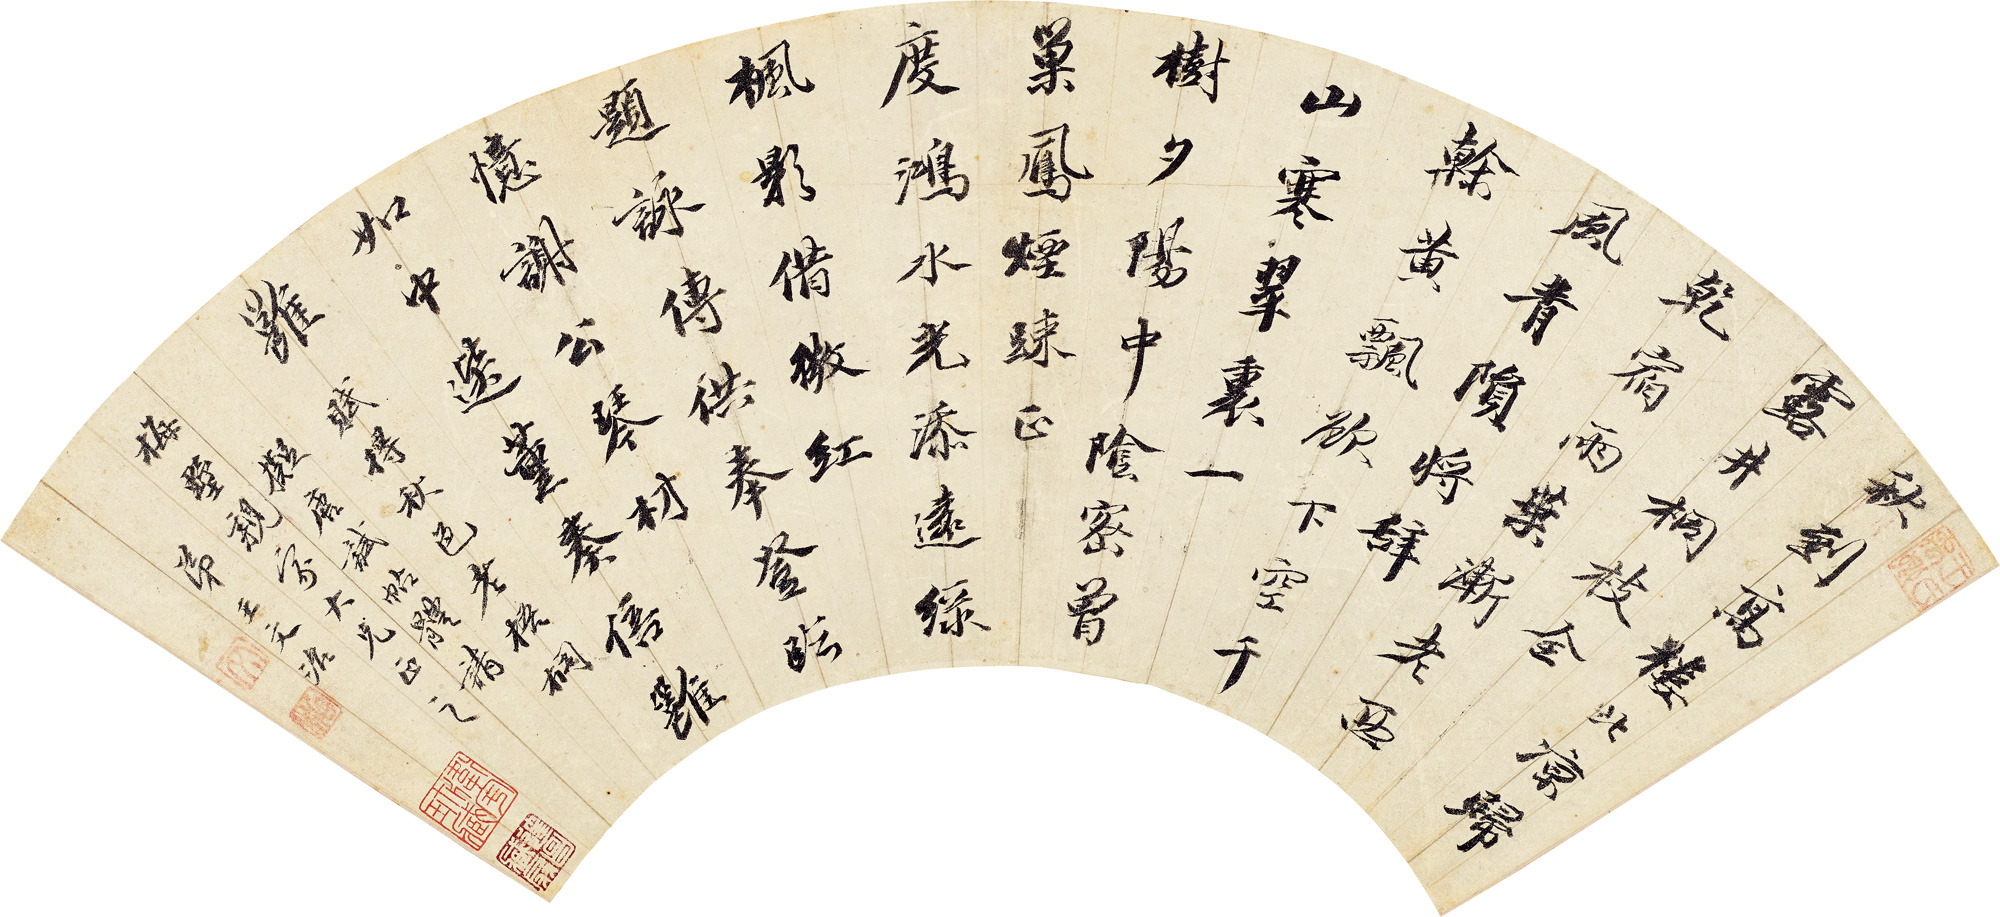 秋到高樓北涼歸
露井桐枝全
乾宿雨葉漸老西
風青隕將辭
幹黃飄欲下空千
山寒翠裏一
樹夕陽中陰密曾
巢鳳煙疎正
度鴻水光添遠綠
楓影借微紅
題詠傳供奉登臨
憶謝公琴材
如中選薰奏倍雝
雝
賦得秋色老梧桐
擬唐試帖體請
梅墅親家大兄正之
弟王文治